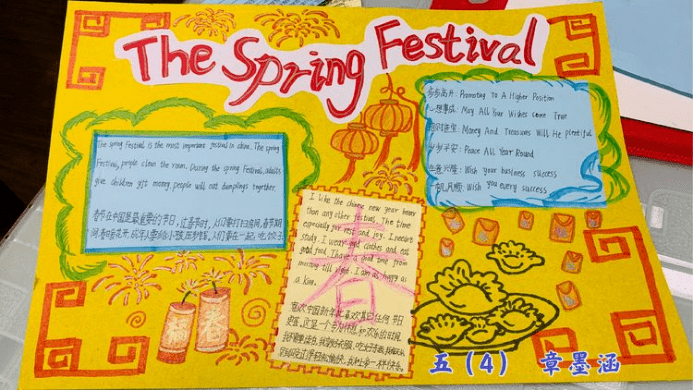 The Spring Festival
The spring Festival is the most important festival in china. The spring
Festival, people clean the room. During the spring Festival, adults
give children gift money, people will eat dumplings together.
春节在中国是最重要的节日,过春节时,人们要打扫房间,春节期
步步高升: Promoting To A Higher Position
心想事成: May All Your Wishes Come True
Money And Treasures Will Be plentiful
岁岁平安: Peace All Year Round
生意兴隆: Wish your business success
一帆风顺: Wish you every success
I like the chinese new year better
than any other festival. The time
especially for rest and joy. I needn't
study. I wear good clothes and eat
good food. I have a good time from
morning till night. I am as happy as
a king.
春
春
春
五(4) 章墨涵